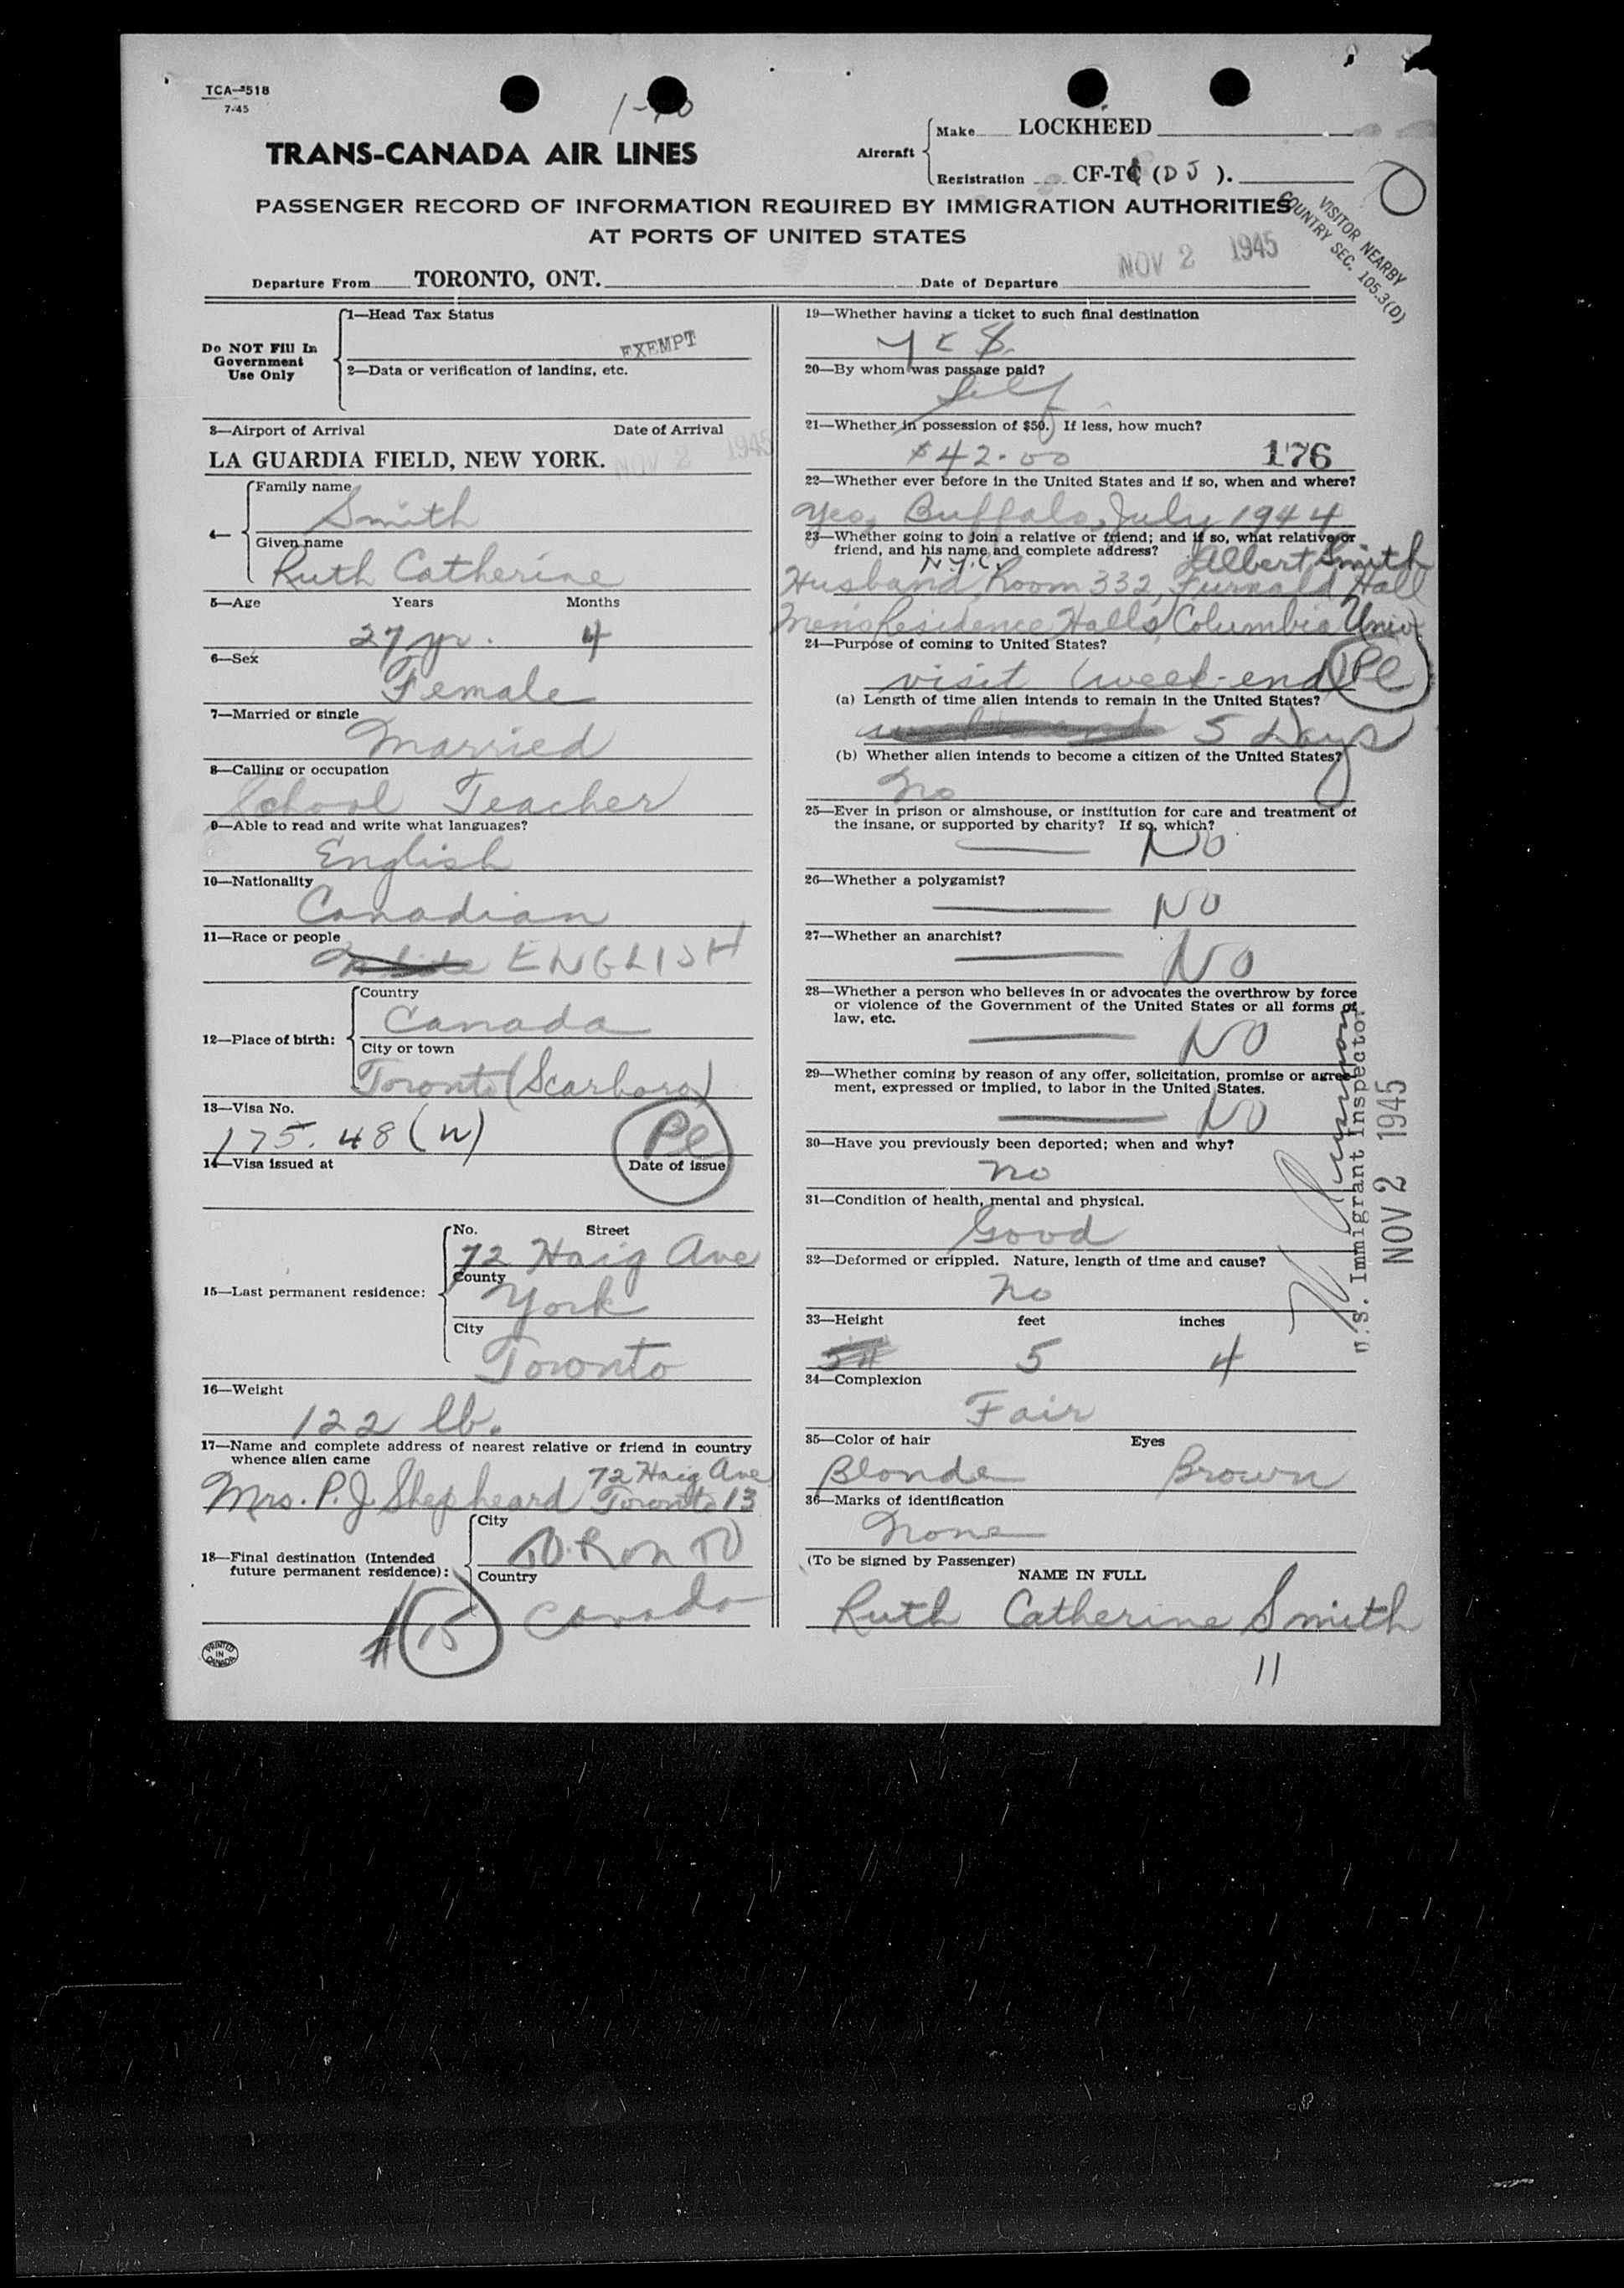 TCA—518
7-45
TRANS-CANADA AIR LINES
Aircraft
Make LOCKHEED
Registration CF-T (D J ).
PASSENGER RECORD OF INFORMATION REQUIRED BY IMMIGRATION AUTHORITIES
AT PORTS OF UNITED STATES
VISITOR NEARBY
COUNTRY SEC. 105.3(D)
NOV 2 1945
Departure From TORONTO, ONT. Date of Departure
Do NOT Fill In
Government
Use Only
1—Head Tax Status
EXEMPT
2—Data or verification of landing, etc.
3—Airport of Arrival Date of Arrival
LA GUARDIA FIELD, NEW YORK. NOV 2 1945
4—
Family name
Smith
Given name
Ruth Catherine
5—Age Years Months
27 yr. 4
6—Sex
Female
7—Married or single
Married
8—Calling or occupation
School Teacher
9—Able to read and write what languages?
English
10—Nationality
Canadian
11—Race or people
White ENGLISH
12—Place of birth:
Country
Canada
City or town
Toronto (Scarboro)
13—Visa No.
175.48 (W)
Pl
14—Visa issued at Date of issue
15—Last permanent residence:
No. Street
72 Haig Ave
County
York
City
Toronto
16—Weight
122 lb.
17—Name and complete address of nearest relative or friend in country
whence alien came
72 Haig Ave
Mrs. P. J. Shepheard Toronto 13
18—Final destination (Intended
future permanent residence):
City
TORONTO
Country
Canada
15
PRINTED
IN
CANADA
19—Whether having a ticket to such final destination
Yes
20—By whom was passage paid?
Self
21—Whether in possession of $50. If less, how much?
$42.00 176
22—Whether ever before in the United States and if so, when and where?
Yes, Buffalo, July 1944
23—Whether going to join a relative or friend; and if so, what relative or
friend, and his name and complete address? Albert Smith
N.Y.C.
Husband, Room 332, Furnald Hall
Men's Residence Halls, Columbia Univ.
24—Purpose of coming to United States?
visit (week-end) Pl
(a) Length of time alien intends to remain in the United States?
5 Days
(b) Whether alien intends to become a citizen of the United States?
No
25—Ever in prison or almshouse, or institution for care and treatment of
the insane, or supported by charity? If so, which?
— NO
26—Whether a polygamist?
— NO
27—Whether an anarchist?
— NO
28—Whether a person who believes in or advocates the overthrow by force
or violence of the Government of the United States or all forms of
law, etc.
— NO
29—Whether coming by reason of any offer, solicitation, promise or agree-
ment, expressed or implied, to labor in the United States.
— NO
30—Have you previously been deported; when and why?
no
31—Condition of health, mental and physical.
Good
32—Deformed or crippled. Nature, length of time and cause?
no
33—Height feet inches
5 4
34—Complexion
Fair
35—Color of hair Eyes
Blonde Brown
36—Marks of identification
None
(To be signed by Passenger)
NAME IN FULL
Ruth Catherine Smith
11
U.S. Immigrant Inspector
NOV 2 1945